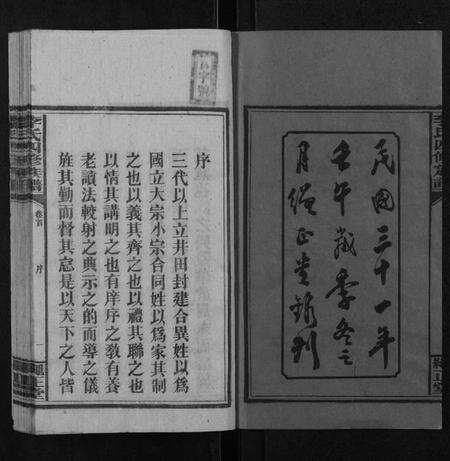 民國三十一年
壬午歲季冬之
月繩正堂錄刊
序
三代以上立井田封建合異姓以為
國立大宗小宗合同姓以為家其制
之也以義其齊之也以禮其聯之也
以情其講明之也有庠序之教有養
老讀法較射之典示之的而導之儀
旌其勤而督其怠是以天下之人皆
李氏四修族譜
卷首
序
一
繩正堂